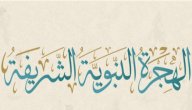 الهجرة النبوية الشريفة